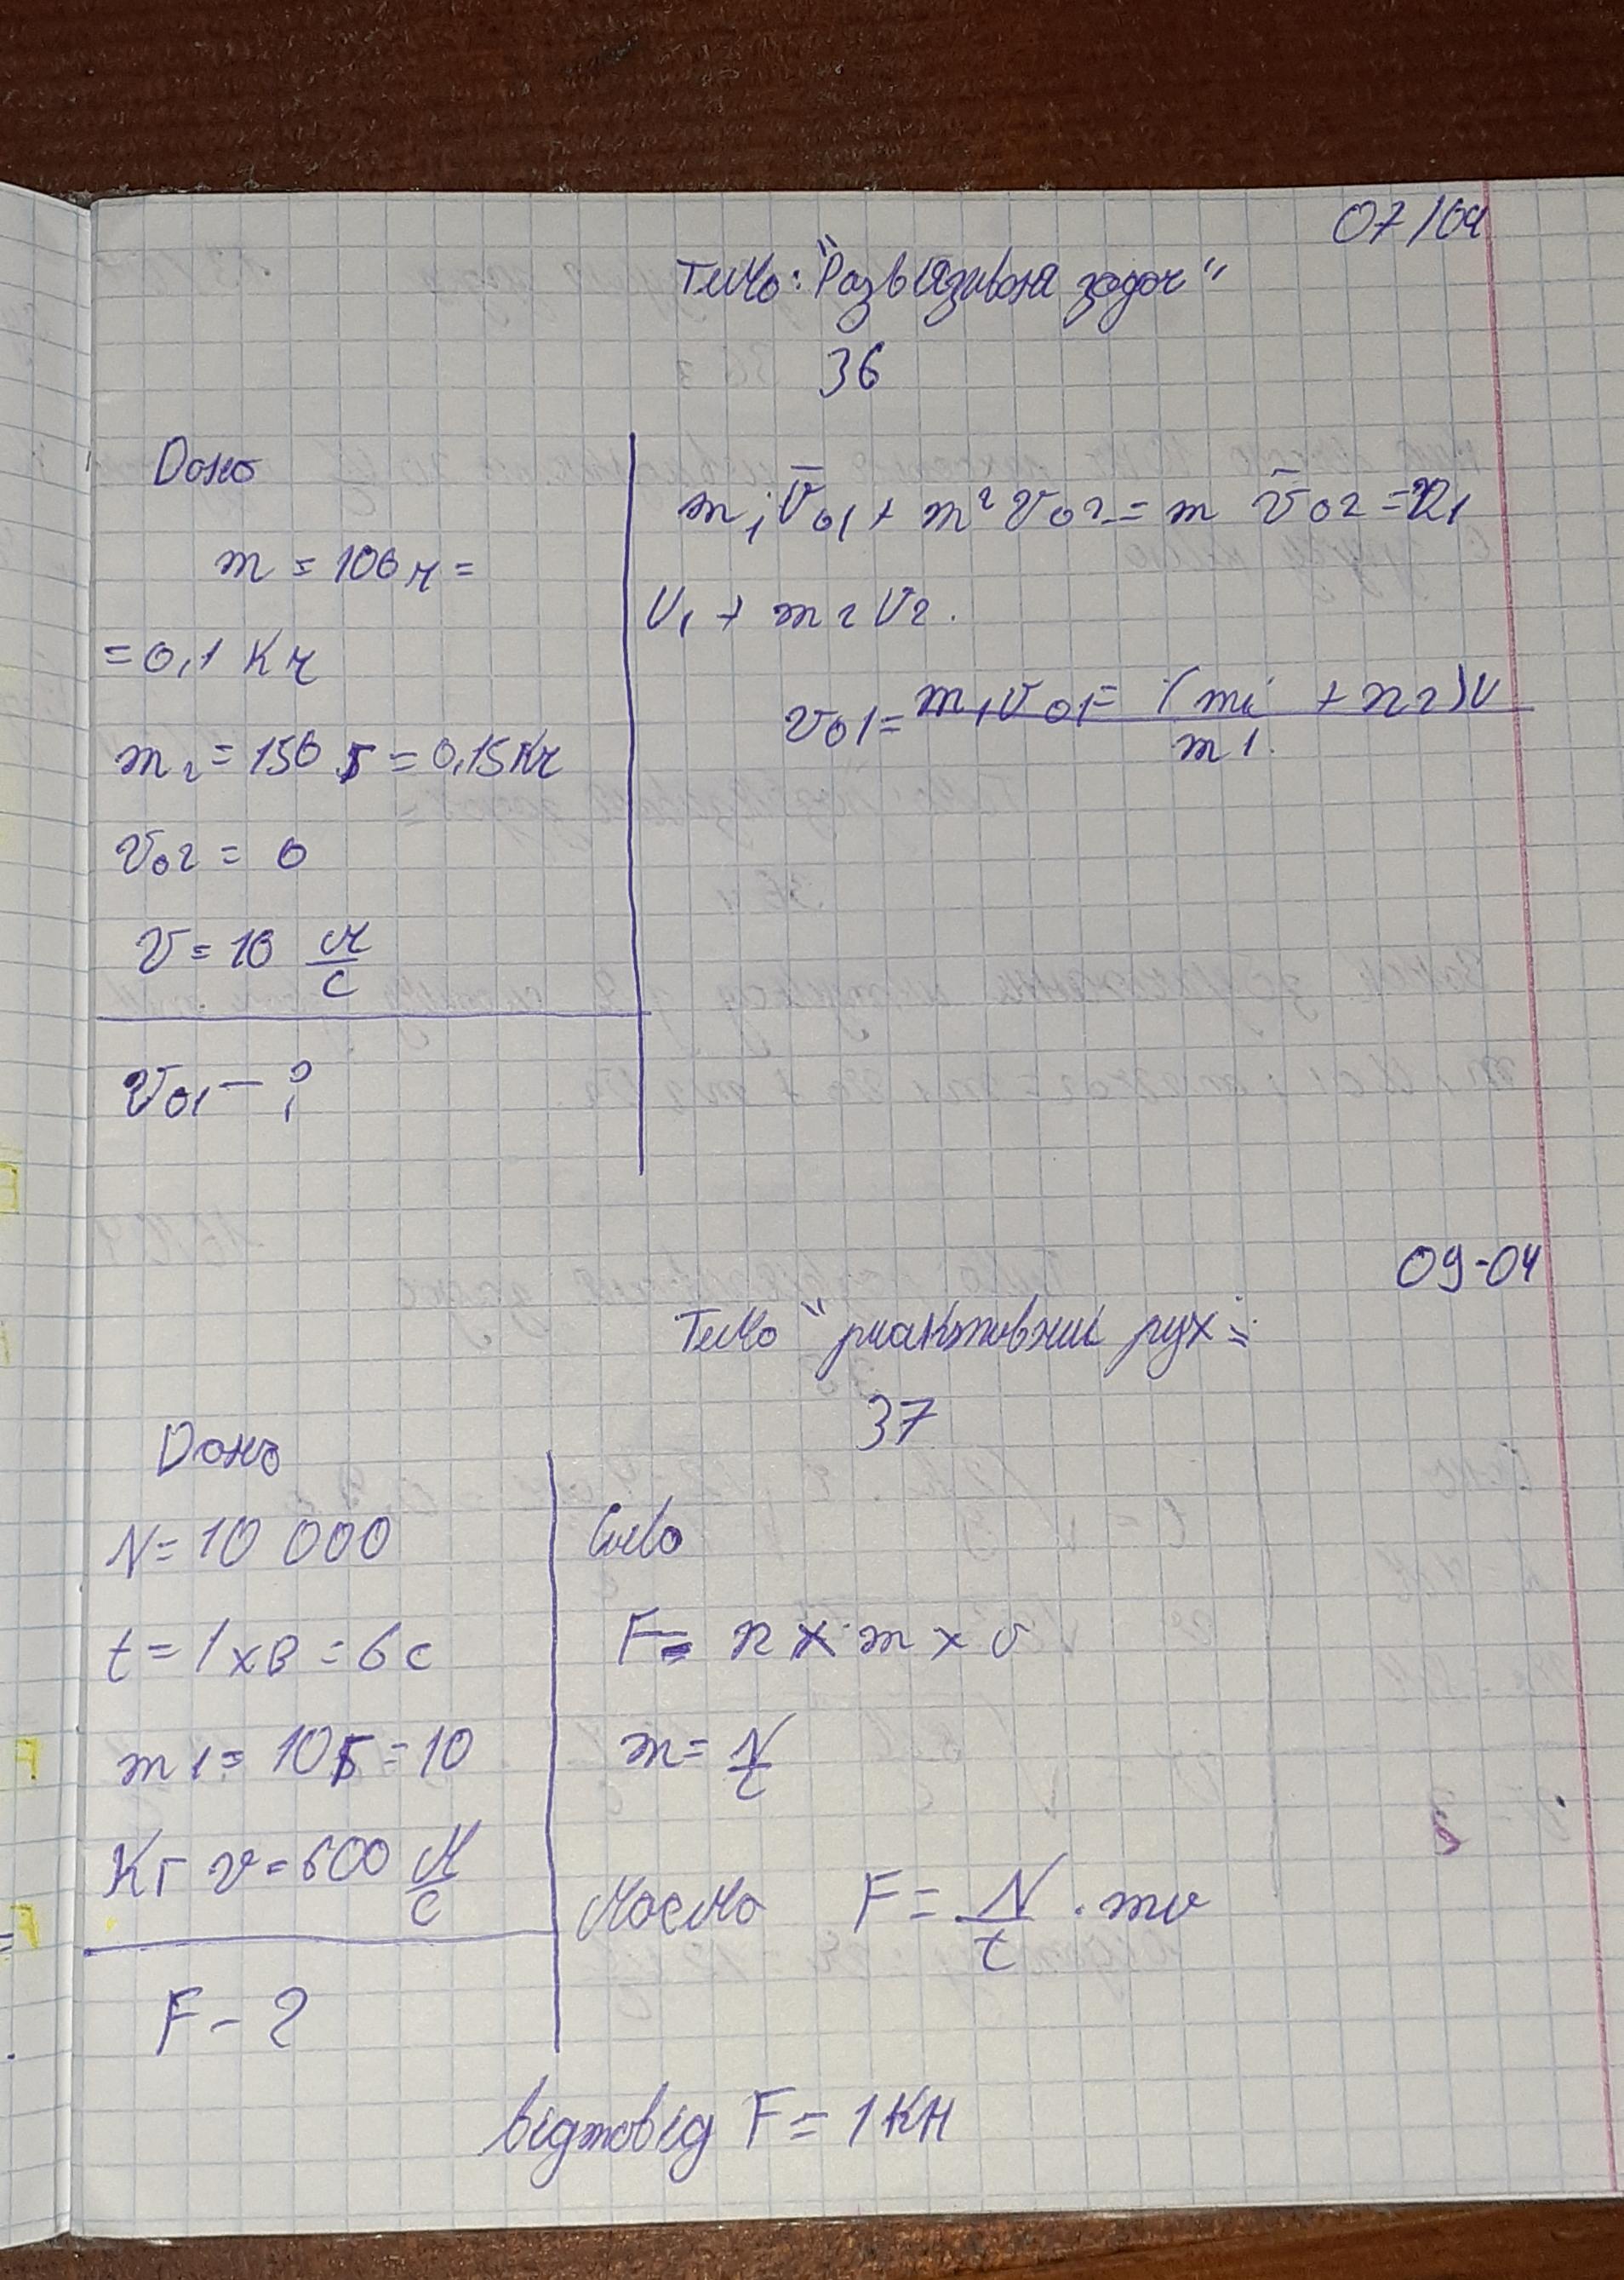 07/04
Тема: "Розвязивоня задач"
36
Дано
m = 100 г =
= 0,1 Кг
m₂ = 150 г = 0,15 Кг
v₀₂ = 0
v = 10 м/с
v₀₁ - ?
m₁v̄₀₁ + m²v₀₂ = m v̄₀₂ =
v₁ + m₂v₂.
v₀₁ = m₁v₀₁ = (m₁ + n₂)v / m1.
09-04
Тема "риактивний рух"
37
Дано
N = 10 000
t = 1 хв = 6 с
m1 = 10г = 10
Кг v = 600 м/с
F - ?
Сила
F = n x m x v
m = N/t
Маємо F = N/t · mv
відповід F = 1 КН